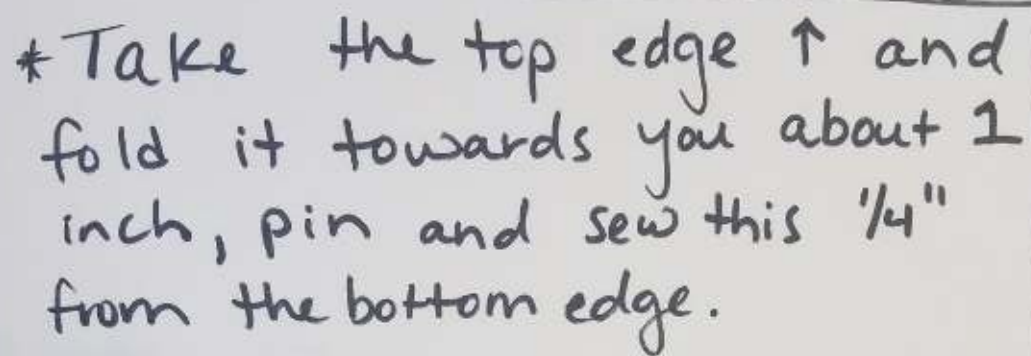 *Take the top edge ↑ and
fold it towards you about 1
inch, pin and sew this 1/4"
from the bottom edge.